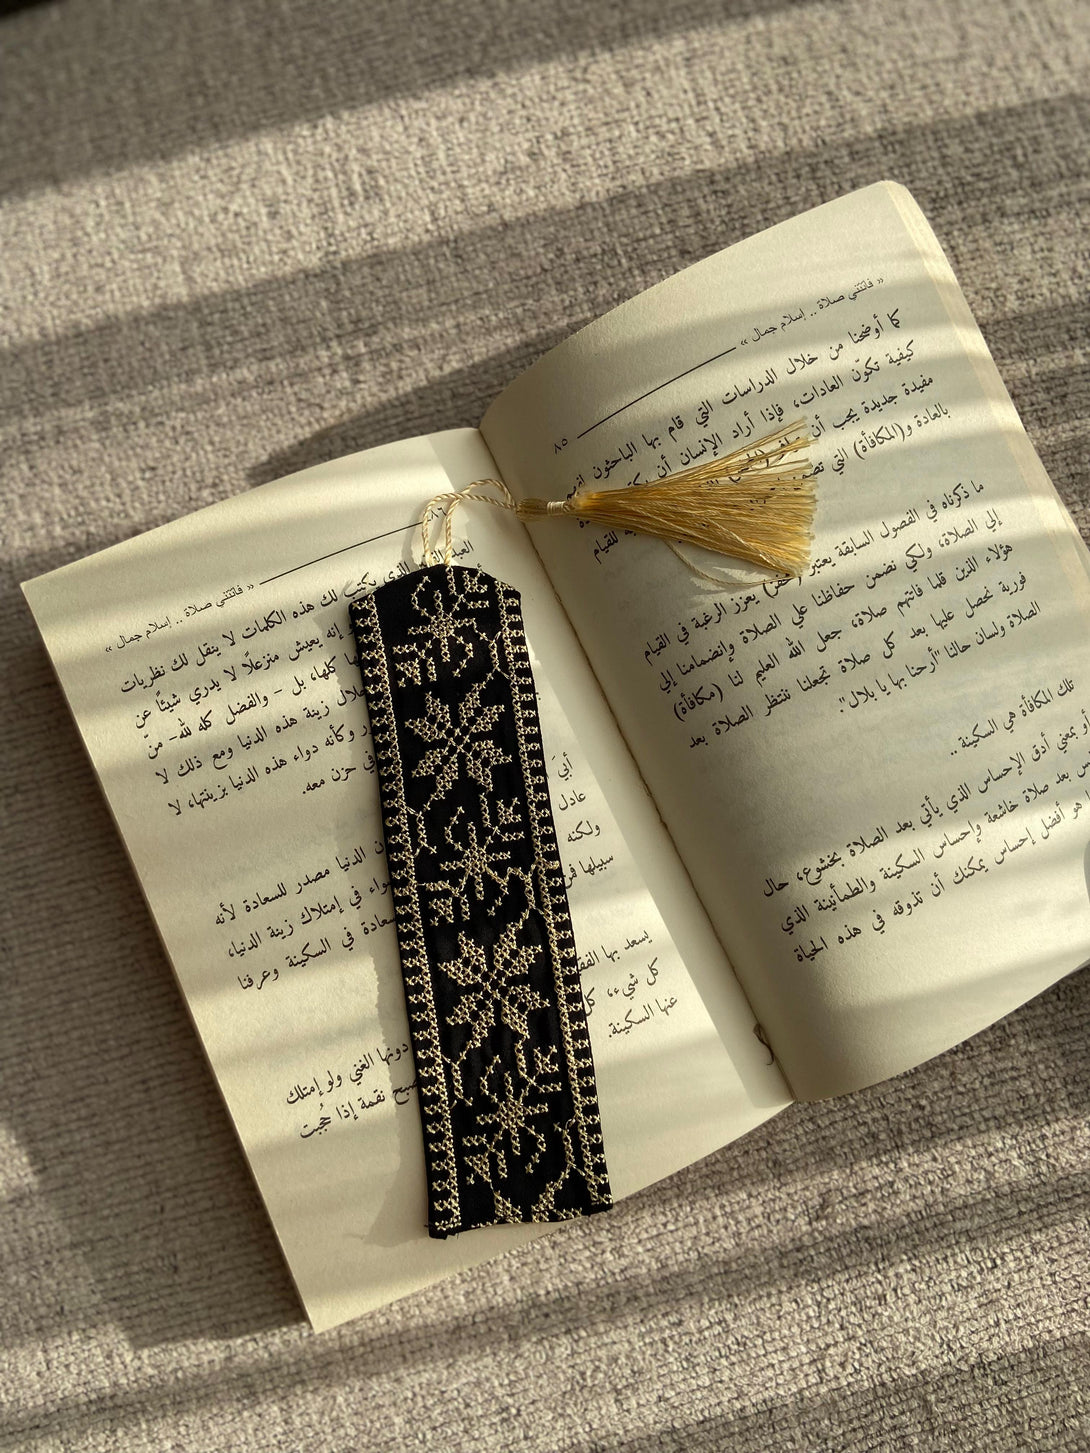 « فاتتني صلاة .. إسلام جمال »
٨٥
كما أوضحنا من خلال الدراسات التي قام بها الباحثون
كيفية تكوّن العادات، فإذا أراد الإنسان أن
مفيدة جديدة يجب أن
بالعادة و(المكافأة) التي
للقيام
ما ذكرناه في الفصول السابقة يعتبر (حفز) يعزز الرغبة في القيام
إلى الصلاة، ولكي نضمن حفاظنا على الصلاة وإنضمامنا إلى
هؤلاء الذين قلما فاتتهم صلاة، جعل الله العليم لنا (مكافأة)
فورية نحصل عليها بعد كل صلاة تجعلنا ننتظر الصلاة بعد
الصلاة ولسان حالنا "أرحنا بها يا بلال".
تلك المكافأة هي السكينة ..
و بمعني أدق الإحساس الذي يأتي بعد الصلاة بخشوع، حال
بعد صلاة خاشعة وإحساس السكينة والطمأنينة الذي
هو أفضل إحساس يمكنك أن تذوقه في هذه الحياة
« فاتتني صلاة .. إسلام جمال »
٨٦
الذي يكتب لك هذه الكلمات لا ينقل لك نظريات
إنه يعيش منزعلًا لا يدري شيئًا عن
كلها، بل - والفضل كله لله- منّ
زينة هذه الدنيا ومع ذلك لا
وكأنه دواء هذه الدنيا بزينتها، لا
في حزن معه.
أبي
الدنيا مصدر للسعادة لأنه
عادل
في إمتلاك زينة الدنيا،
ولكنه
في السكينة وعرفنا
سبيلها
يسعد بها
دونها الغني ولو إمتلك
كل شيء، كل
نقمة إذا حُجبت
عنها السكينة.